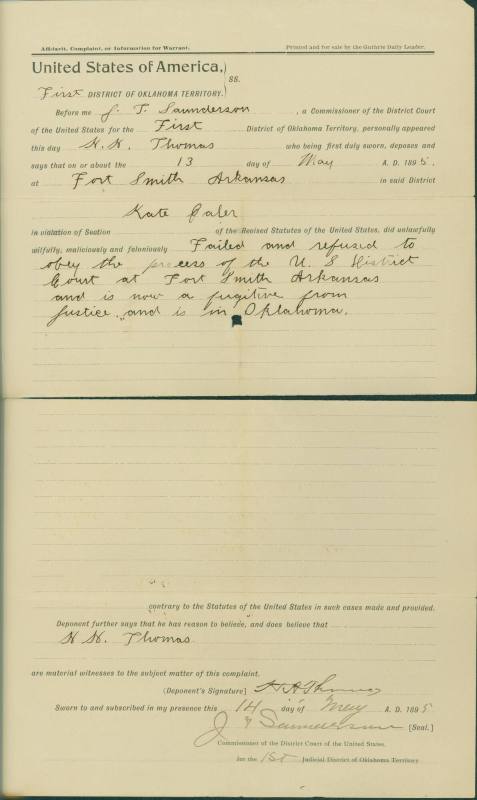 Affidavit, Complaint, or Information for Warrant. Printed and for sale by the Guthrie Daily Leader.
United States of America,
ss.
First DISTRICT OF OKLAHOMA TERRITORY.
Before me J. T. Saunderson, a Commissioner of the District Court
of the United States for the First District of Oklahoma Territory, personally appeared
this day Thomas who being first duly sworn, deposes and
says that on or about the 13 day of May A. D. 1895.
at Fort Smith Arkansas in said District
Kate
in violation of Section of the Revised Statutes of the United States, did unlawfully
wilfully, maliciously and feloniously Failed and refused to
obey the process of the U. S District
Court at Fort Smith Arkansas
and is now a fugitive from
justice. and is in Oklahoma.
contrary to the Statutes of the United States in such cases made and provided.
Deponent further says that he has reason to believe, and does believe that
Thomas
are material witnesses to the subject matter of this complaint.
(Deponent's Signature)
Sworn to and subscribed in my presence this 14 day of May A. D. 1895
J T Saunderson [Seal.]
Commissioner of the District Courts of the United States.
for the 1st Judicial District of Oklahoma Territory